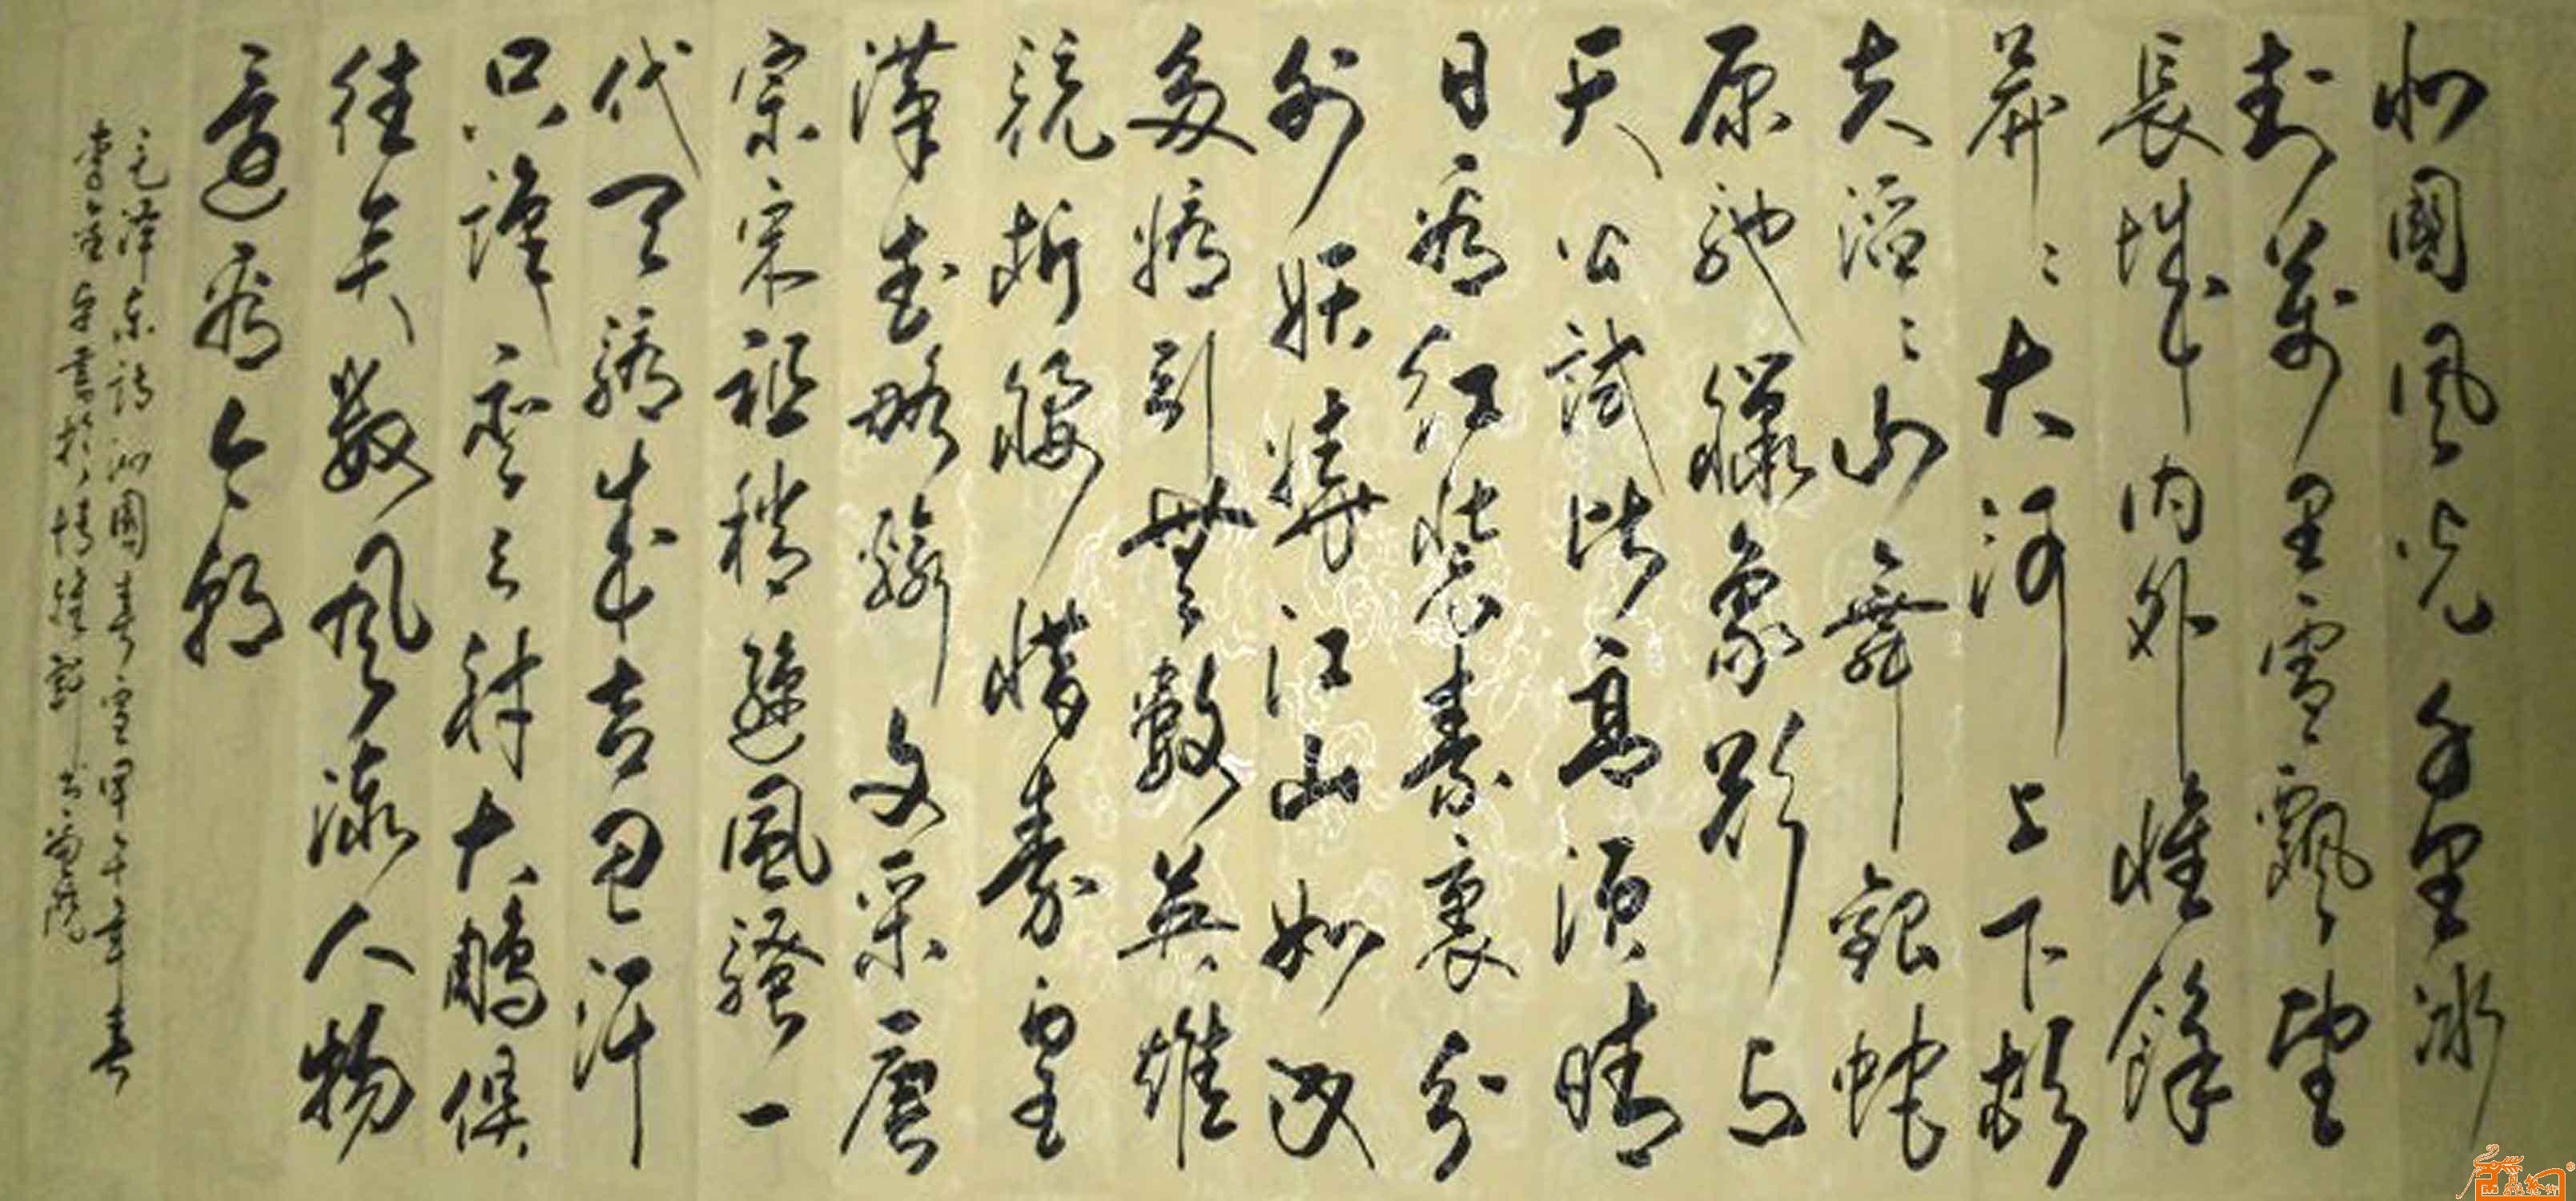 北國風光千里冰
封萬里雪飄望
長城内外惟餘
莽〻大河上下頓
失滔〻山舞銀蛇
原馳臘象欲与
天公試比高須晴
日看紅裝素裹分
外妖嬈江山如此
多嬌引無數英雄
競折腰惜秦皇
漢武略輸文采唐
宗宋祖稍遜風騷一
代天驕成吉思汗
只識彎弓射大鵰俱
往矣數風流人物
還看今朝
毛澤東詩沁園春雪甲午年春
書於